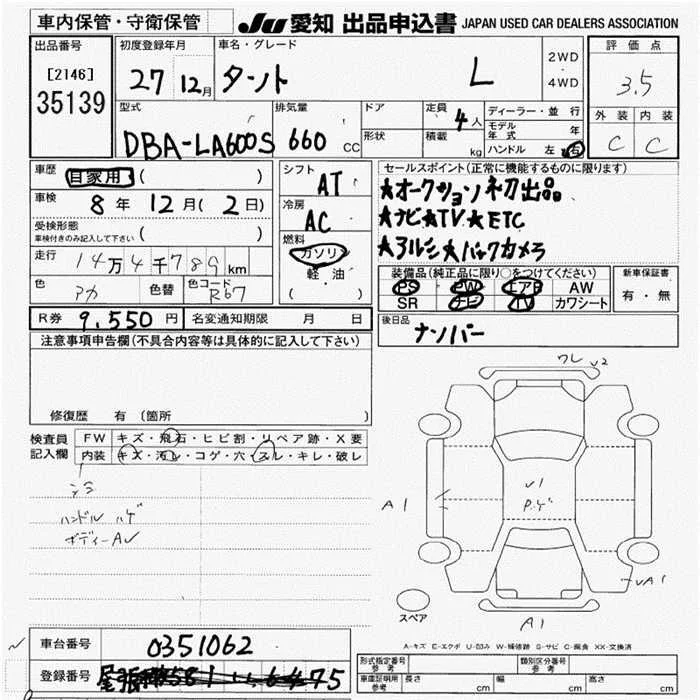 車内保管・守衛保管 JU 愛知 出品申込書 JAPAN USED CAR DEALERS ASSOCIATION
出品番号 初度登録年月 車名・グレード 評価点
[2146] 27 12月 タント L 2WD・4WD 3.5
35139
型式 排気量 ドア 定員 4人 ディーラー・並行 外装 内装
モデル年式 年
DBA-LA600S 660 CC 形状 積載 kg ハンドル 左 右 C C
車歴 自家用 ( ) シフト AT セールスポイント(正常に機能するものに限ります)
車検 8年 12月 ( 2日) 冷房 AC ★オークション初出品
受検形態 ( ) ★ナビ★TV★ETC
車検付きのみ記入して下さい
燃料 ガソリン 軽油 ( ) ★アルミ★バックカメラ
走行 14万4千789km
色 アカ 色替 色コード R67
装備品(純正品に限り○をつけてください) 新車保証書
PS PW エアB AW 有・無
SR ナビ TV カワシート
R券 9,550円 名変通知期限 月 日
後日品 ナンバー
注意事項申告欄(不具合内容等は具体的に記入して下さい)
修復歴 有 (箇所 )
検査員記入欄 FW キズ・飛石・ヒビ割・リペア跡・X要
内装 キズ・汚レ・コゲ・穴・スレ・キレ・破レ
ハンドル ハゲ
ボディーAU
ワレ U2
U1
P.ゲ
A1
A1
UA1
A1
スペア
A-キズ E-エクボ U-凹み W-補修跡 S-サビ C-腐食 XX-交換済
車台番号 0351062
登録番号 75
形式指定番号 参考 類別区分番号 参考
車庫証明用 参考 長さ cm 幅 cm 高さ cm